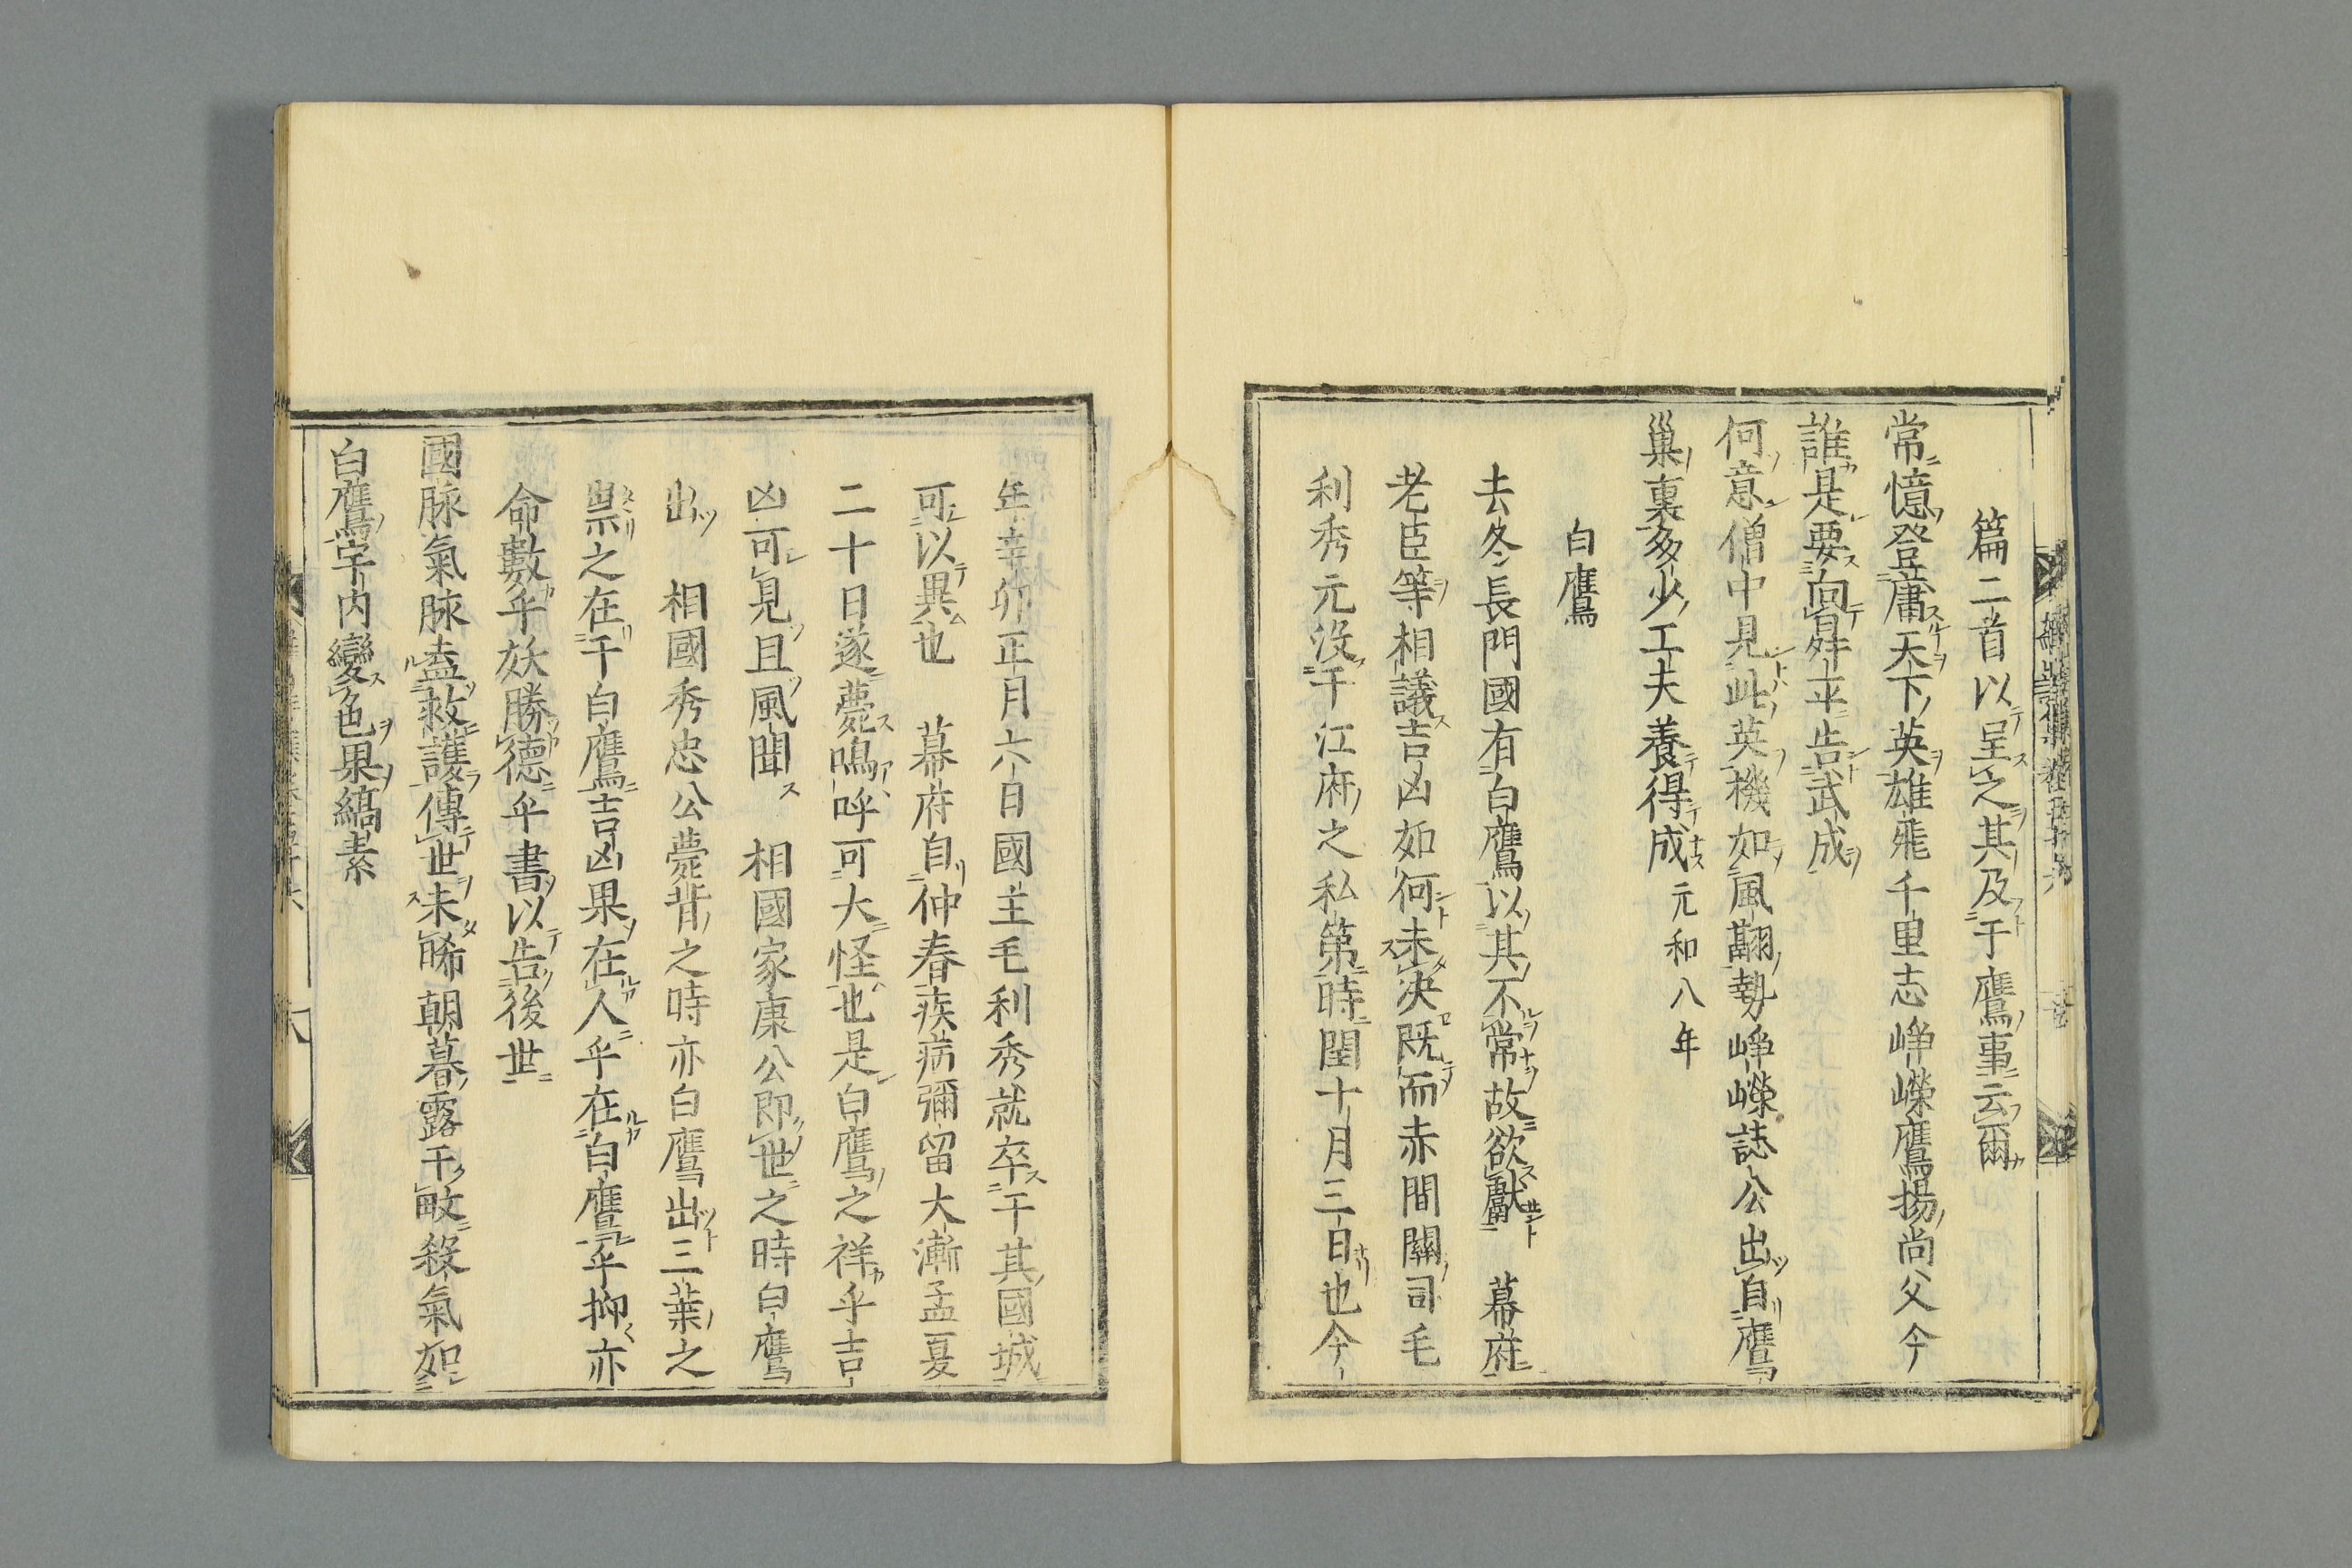 篇二首以呈之其及于鷹事云爾
常憶登庸天下英雄飛千里志崢嶸鷹揚尚父今
誰是要向昇平告武成
何意僧中見此英機如風翻勢崢嶸誌公出自鷹
巢裏多少工夫養得成元和八年
白鷹
去冬長門國有白鷹以其不常故欲獻 幕府
老臣等相議吉凶如何未决既而赤間關司毛
利秀元没于江府之私第時閏十月三日也今
年辛卯正月六日國主毛利秀就卒于其國城
可以異也 幕府自仲春疾病彌留大漸孟夏
二十日遂薨嗚呼可大怪也是白鷹之祥乎吉
凶可見且風聞 相國家康公即世之時白鷹
出 相國秀忠公薨背之時亦白鷹出三葉之
祟之在于白鷹吉凶果在人乎在白鷹乎抑亦
命數乎妖勝德乎書以告後世
國脉氣脉盍救護傳世未晞朝暮露干畝殺氣如
白鷹宇内變色果縞素